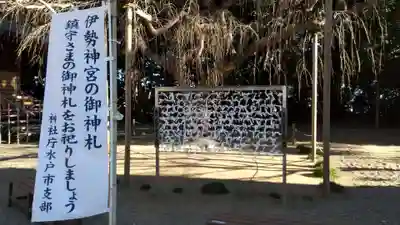 伊勢神宮の御神札
鎮守さまの御神札をお祀りしましょう
神社庁水戸市支部